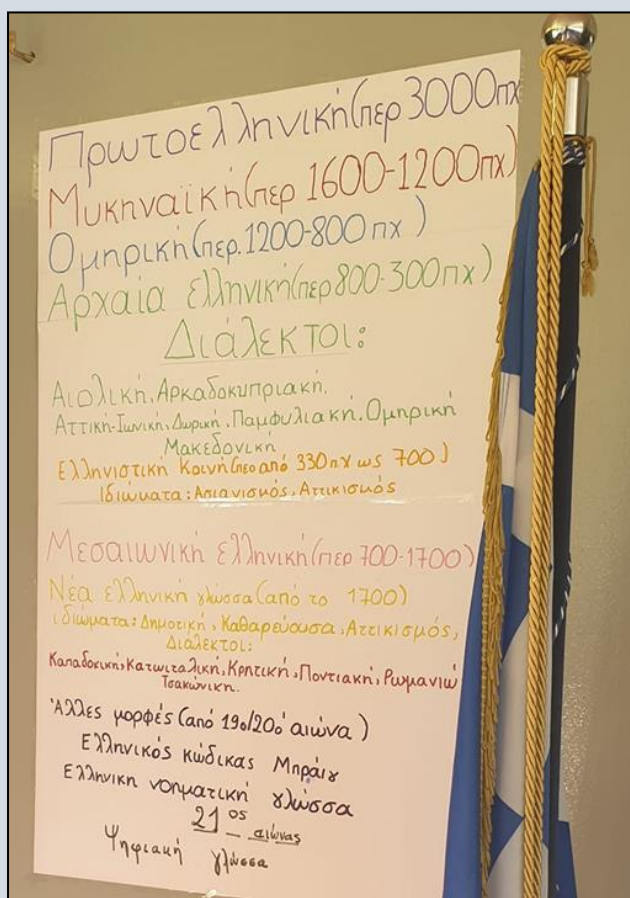 Πρωτοελληνική (περ 3000πχ
Μυκηναϊκή (περ 1600-1200πχ)
Ομηρική (περ. 1200-800 πχ )
Αρχαία ελληνική (περ 800-300πχ)
Διάλεκτοι:
Αιολική, Αρκαδοκυπριακή,
Αττική-Ιωνική, Δωρική, Παμφυλιακή, Ομηρική
Μακεδονική
Ελληνιστική Κοινή (περ από 330πχ ως 700)
Ιδιώματα: Ασιανισμός, Αττικισμός
Μεσαιωνική ελληνική (περ 700-1700)
Νέα ελληνική γλώσσα (από το 1700)
ιδιώματα: Δημοτική, Καθαρεύουσα, Αττικισμός,
Διάλεκτοι:
Καπαδοκική, Κατωιταλική, Κρητική, Ποντιακή, Ρωμανιώ
Τσακώνικη.
Άλλες μορφές (από 19ο/20ό αιώνα)
Ελληνικός κώδικας Μπράιγ
Ελληνικη νοηματική γλώσσα
21ος αιώνας
Ψηφιακή γλώσσα